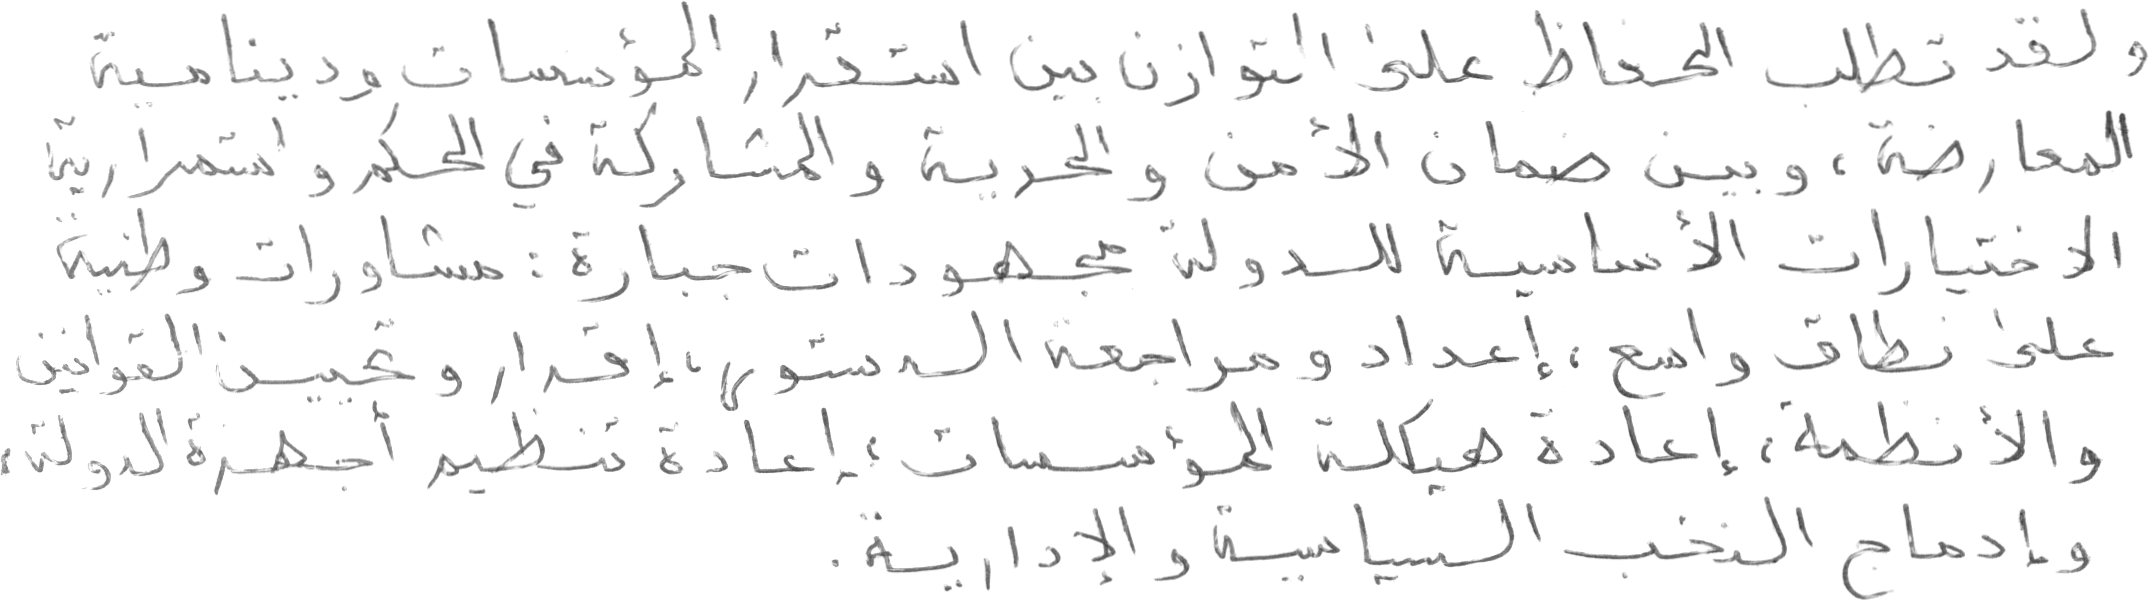 ولقد تطلب الحفاظ على التوازن بين استقرار المؤسسات ودينامية
المعارضة، وبين ضمان الأمن والحرية والمشاركة في الحكم واستمرارية
الاختيارات الأساسية للدولة مجهودات جبارة: مشاورات وطنية
على نطاق واسع، إعداد ومراجعة الدستور، إقرار وتحيين القوانين
والأنظمة، إعادة هيكلة المؤسسات، إعادة تنظيم أجهزة الدولة،
وإدماج النخب السياسية والإدارية.